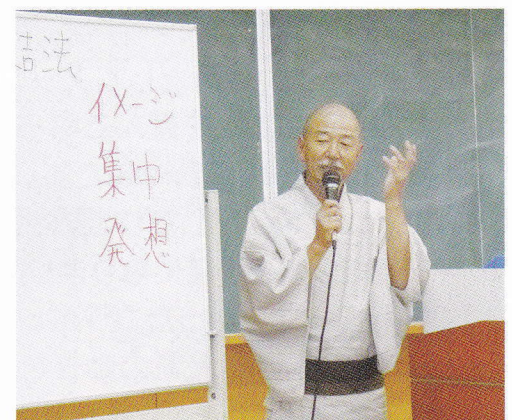 法
イメージ
集中
発想